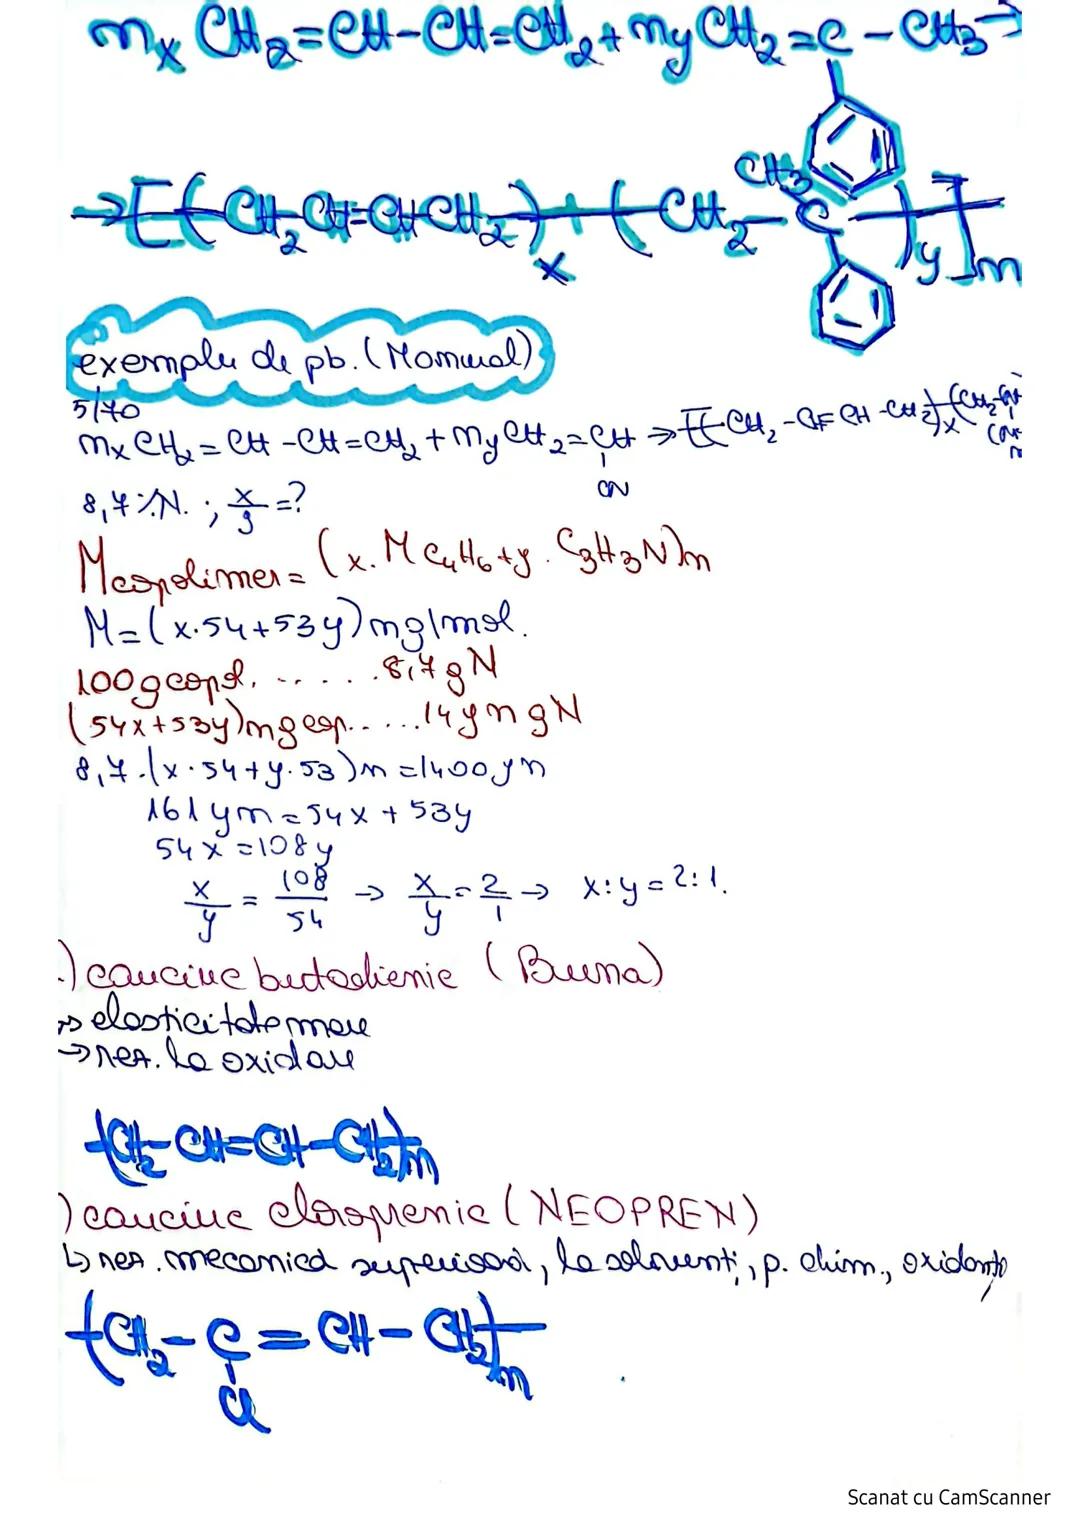 nx CH2=CH-CH=CH2 + ny CH2=C-CH3→
→[(CH2-CH=CH-CH2)x+(CH2-C)y]n
CH3
exemplu de pb. (Manual)
5/70
nx CH2=CH-CH=CH2 + ny CH2=CH → [(CH2-CH=CH-CH2)x(CH2-CH
CN
CN
8,7%N. ; x/y =?
Mcopolimer = (x. M C4H6 + y. C3H3N)n
M=(x.54+53y)n g/mol.
100g copol. ...... 8,7 g N
(54x+53y)n g cop. ..... 14yn g N
8,7.(x.54+y.53)n=1400yn
161yn=54x+53y
54x=108y
x/y = 108/54 → x/y = 2/1 → x:y=2:1.
.) cauciuc butadienic (Buna)
→ elasticitate mare
→ rez. la oxidare
(CH2-CH=CH-CH2)n
) cauciuc cloroprenic (NEOPREN)
↳ rez. mecanică superioară, la solvenți, p. chim., oxidanți
(CH2-C=CH-CH2)n
Cl
Scanat cu CamScanner